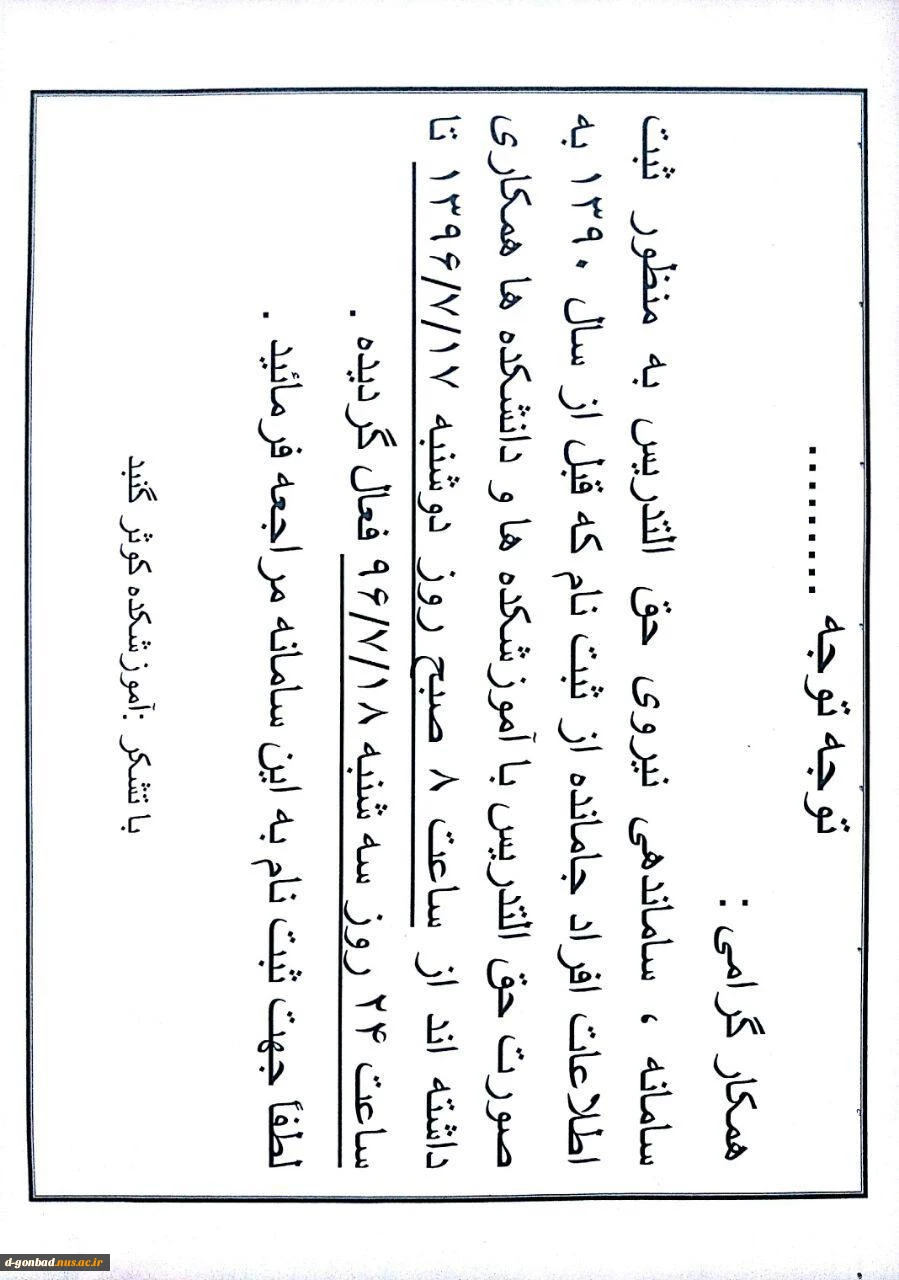 توجه توجه .........
همکار گرامی :
سامانه ، ساماندهی نیروی حق التدریس به منظور ثبت
اطلاعات افراد جامانده از ثبت نام که قبل از سال ۱۳۹۰ به
صورت حق التدریس با آموزشکده ها و دانشکده ها همکاری
داشته اند از ساعت ۸ صبح روز دوشنبه ۱۳۹۶/۷/۱۷ تا
ساعت ۲۴ روز سه شنبه ۹۶/۷/۱۸ فعال گردیده .
لطفاً جهت ثبت نام به این سامانه مراجعه فرمائید .
با تشکر :آموزشکده کوثر گنبد
d-gonbad.nus.ac.ir